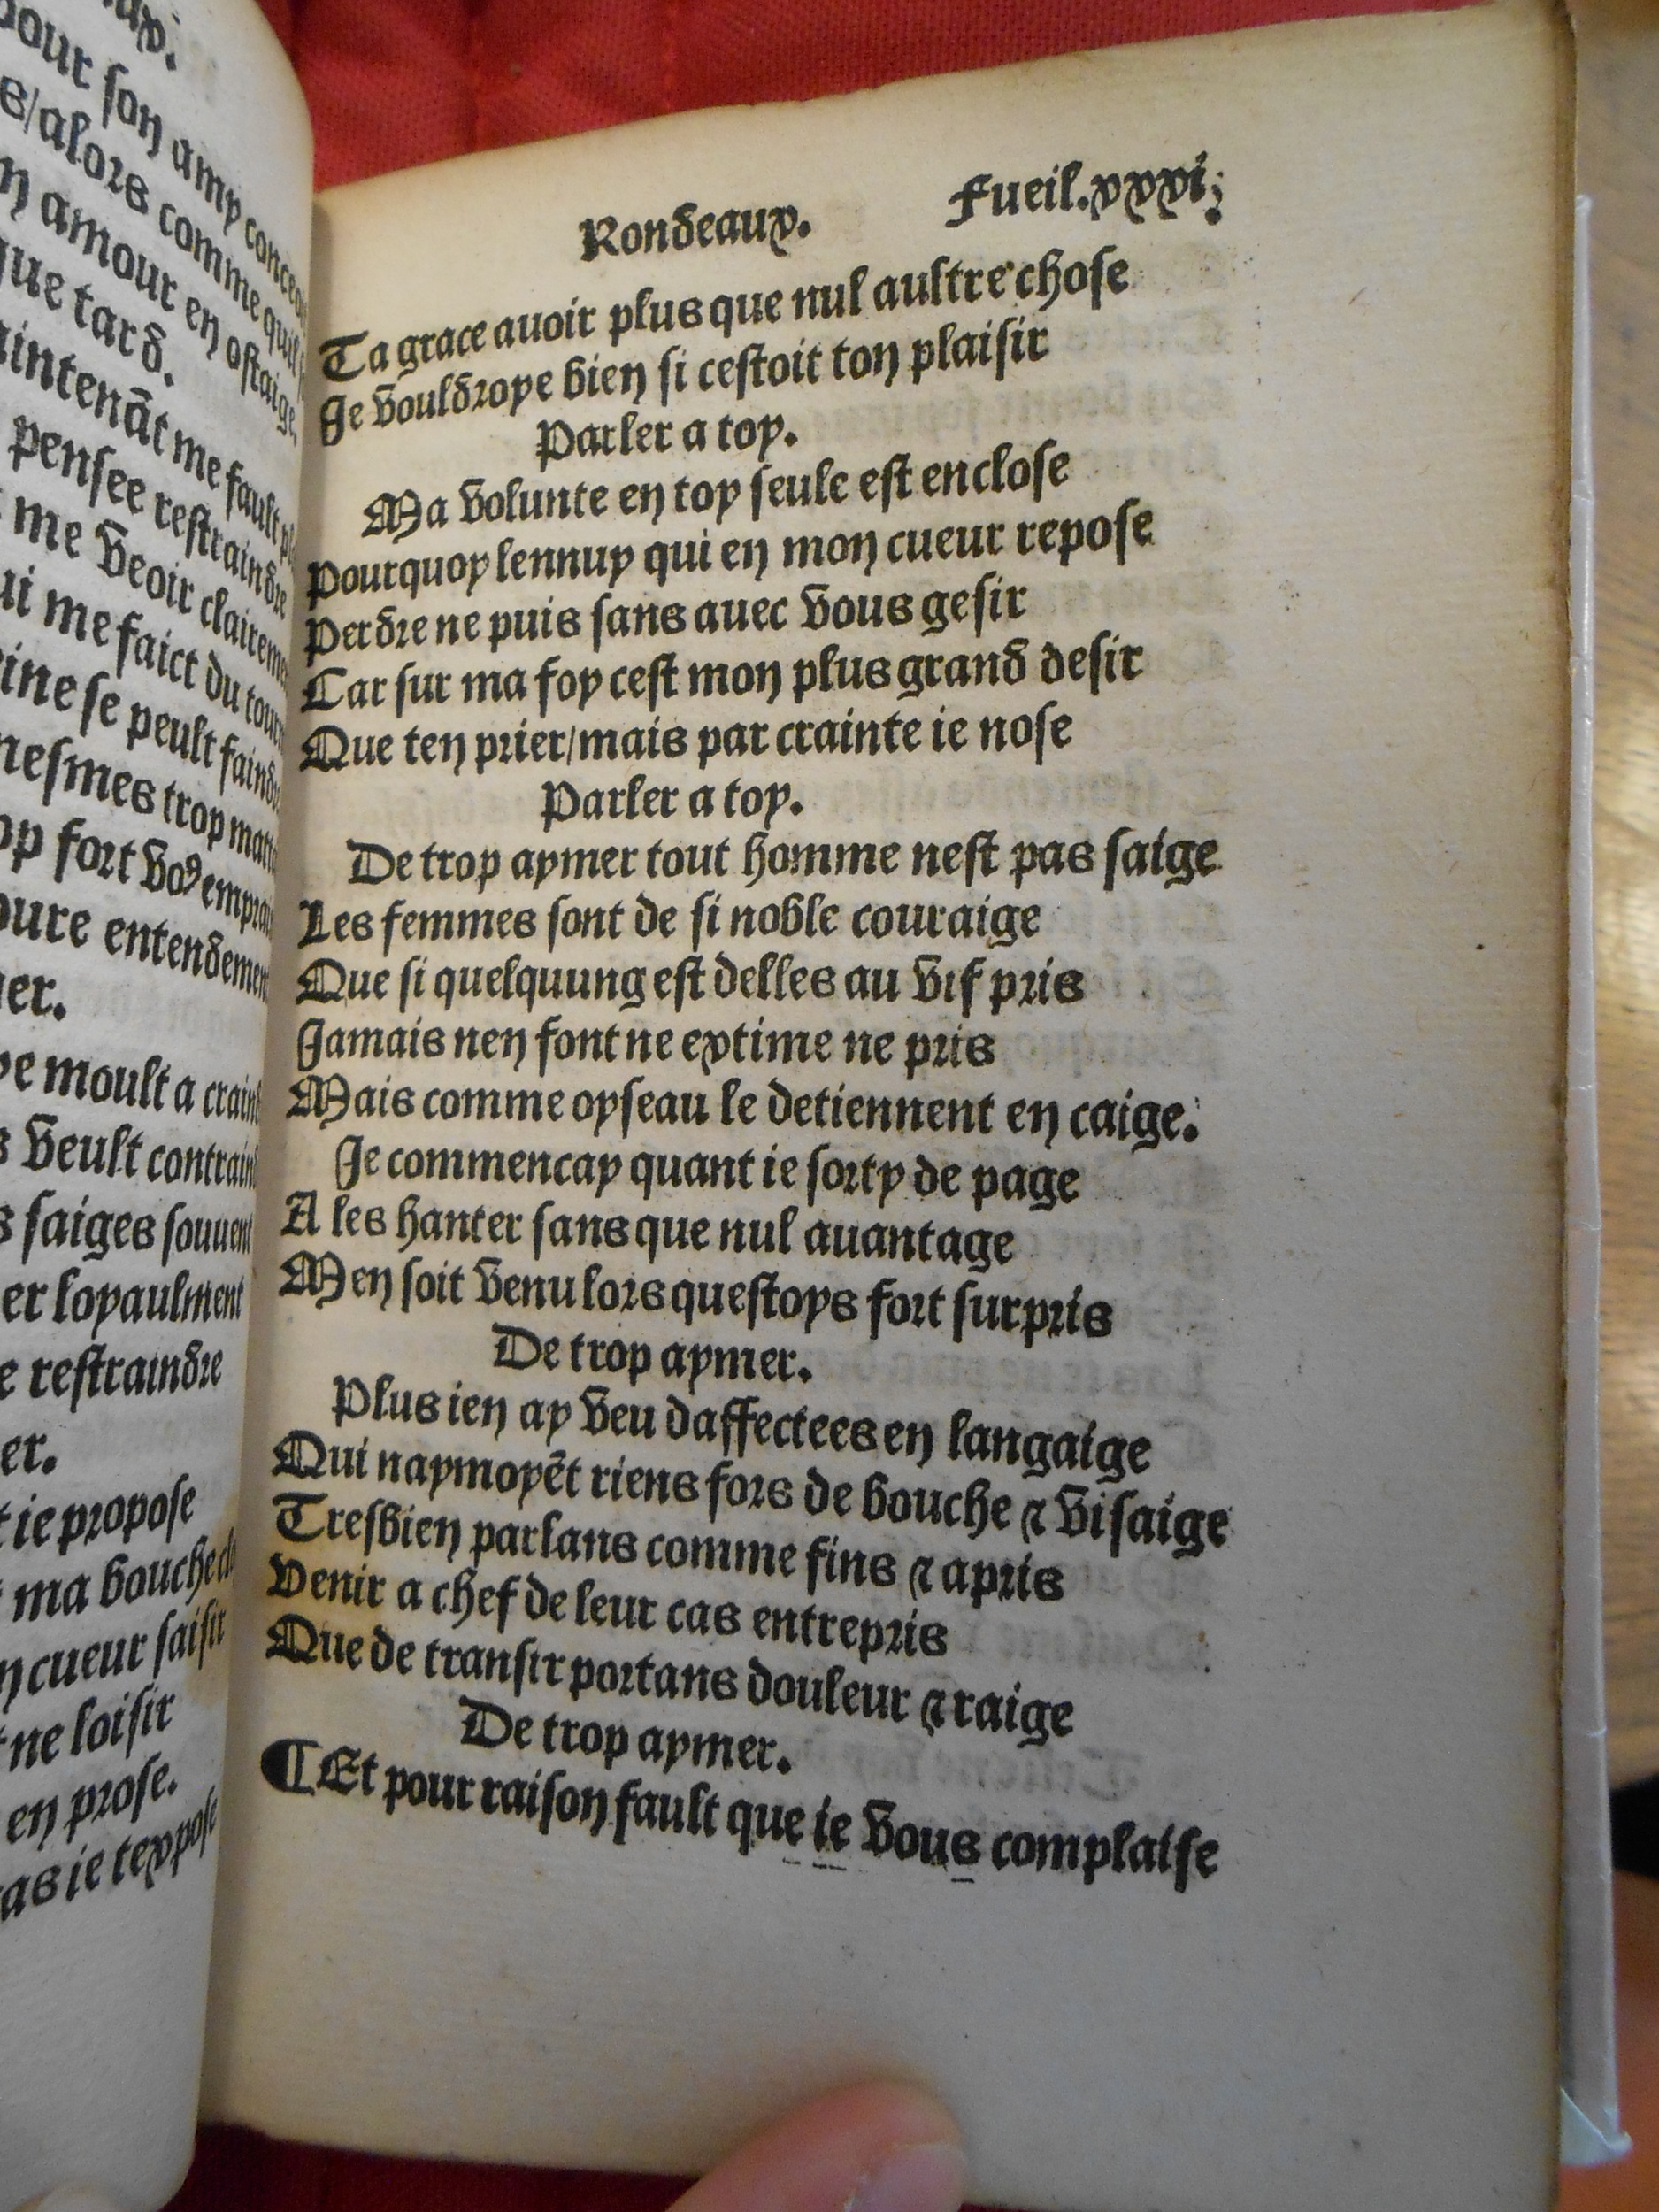 pour son amy
s/alors comme quil
n amour en ostaige
que tard.
aintenãt me fault
pensee restraindre
me veoir clairem
ui me faict du tour
ine se peult faind
mesmes trop
op fort vo⁹
pure entendemen
er.
moult a crain
s veult contrain
s saiges souuent
er loyaulment
e restraindre
er.
t ie propose
ma bouche
n cueur saisir
ne loisir
en prose.
as ie texpose
Rondeaux. Fueil.xxxi.
Ta grace auoir plus que nul aultre chose
Je vouldroye bien si cestoit ton plaisir
Parler a toy.
Ma volunte en toy seule est enclose
Pourquoy lennuy qui en mon cueur repose
Perdre ne puis sans auec vous gesir
Car sur ma foy cest mon plus grand desir
Que ten prier/mais par crainte ie nose
Parler a toy.
De trop aymer tout homme nest pas saige
Les femmes sont de si noble couraige
Que si quelquung est delles au vif pris
Jamais nen font ne extime ne pris
Mais comme oyseau le detiennent en caige.
Je commencay quant ie sorty de page
A les hanter sans que nul auantage
Men soit venu lors questoys fort surpris
De trop aymer.
Plus ien ay veu daffectees en langaige
Qui naymoyẽt riens fors de bouche ⁊ visaige
Tresbien parlans comme fins ⁊ apris
Venir a chef de leur cas entrepris
Que de transir portans douleur ⁊ raige
De trop aymer.
¶Et pour raison fault que ie vous complaise